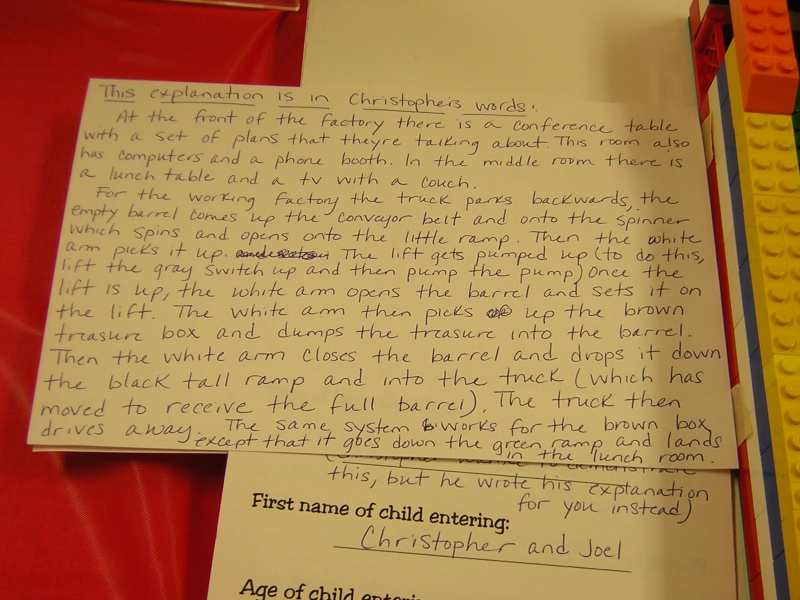 This explanation is in Christopher's words:
At the front of the factory there is a conference table
with a set of plans that theyre talking about. This room also
has computers and a phone booth. In the middle room there is
a lunch table and a tv with a couch.
For the working factory the truck parks backwards, the
empty barrel comes up the conveyor belt and onto the spinner
which spins and opens onto the little ramp. Then the white
arm picks it up. The lift gets pumped up (to do this,
lift the gray switch up and then pump the pump) Once the
lift is up, the white arm opens the barrel and sets it on
the lift. The white arm then picks up the brown
treasure box and dumps the treasure into the barrel.
Then the white arm closes the barrel and drops it down
the black tall ramp and into the truck (which has
moved to receive the full barrel). The truck then
drives away. The same system works for the brown box
except that it goes down the green ramp and lands
in the lunch room.
to demonstrate
this, but he wrote his explanation
for you instead)
First name of child entering:
Christopher and Joel
Age of child